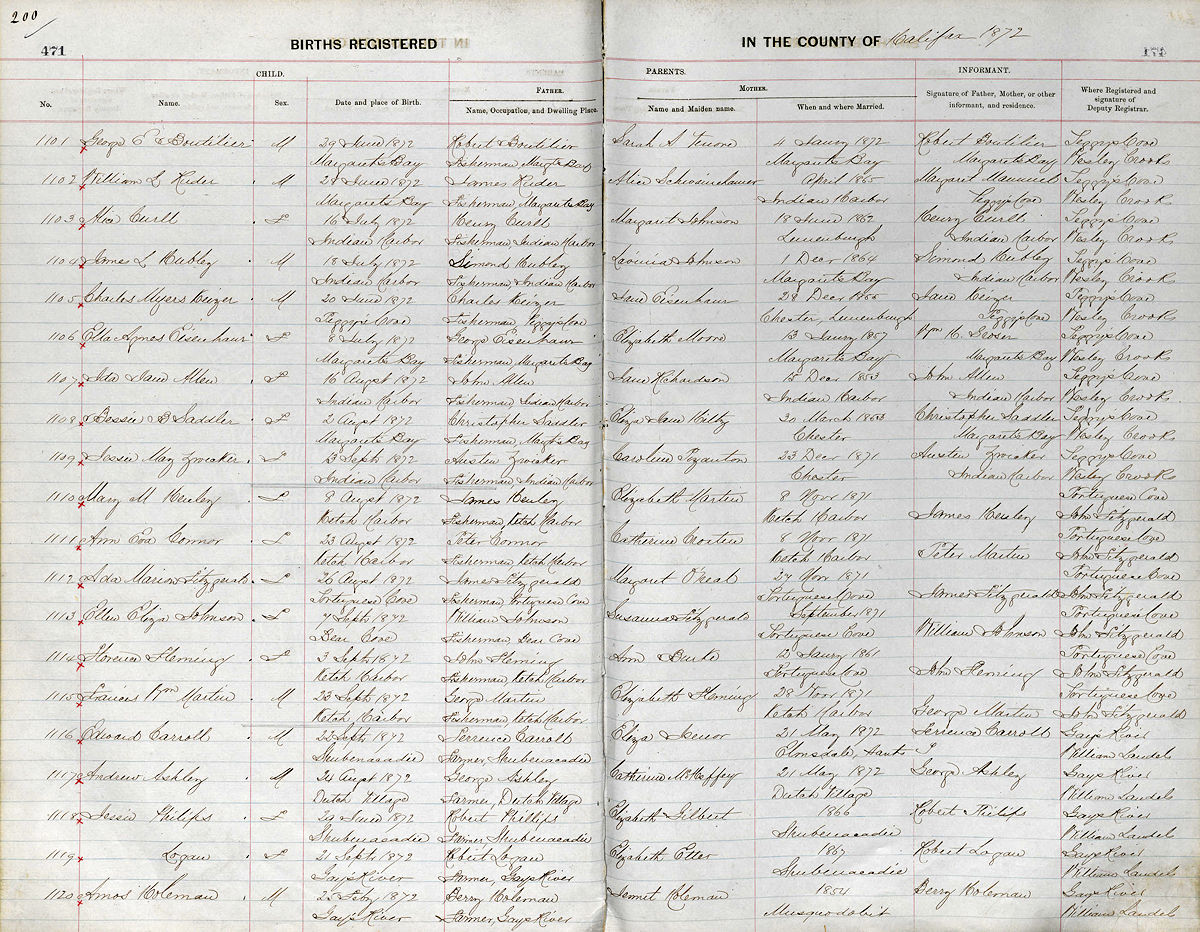 200
471
BIRTHS REGISTERED
IN THE COUNTY OF Halifax 1872
171
CHILD.
PARENTS.
INFORMANT.
No.
Name.
Sex.
Date and place of Birth.
FATHER.
Name, Occupation, and Dwelling Place.
MOTHER.
Name and Maiden name.
When and where Married.
Signature of Father, Mother, or other informant, and residence.
Where Registered and signature of Deputy Registrar.
1101 George E Boutilier M 29 June 1872 Robert Boutilier Sarah A 4 Jaury 1872 Robert Boutilier Peggy's Cove
Margarets Bay Fisherman Margts Bay Margarets Bay Margarets Bay Wesley Crooks
1102 William L Rider M 24 June 1872 James Rider Alice April 1865 Margaret Peggy's Cove
Margarets Bay Fisherman, Margarets Bay Indian Harbor Peggys Cove Wesley Crooks
1103 Alice Curll F 16 July 1872 Henry Curll Margaret Johnson 18 June 1862 Henry Curll Peggy's Cove
Indian Harbor Fisherman, Indian Harbor Lunenburgh Indian Harbor Wesley Crooks
1104 James L Hubley M 18 July 1872 Simond Hubley Lavinia Johnson 1 Decr 1864 Simond Hubley Peggy's Cove
Indian Harbor Fisherman Indian Harbor Margarets Bay Indian Harbor Wesley Crooks
1105 Charles Myers Keizer M 20 June 1872 Charles Keizer Jane Eisenhaur 28 Decr 1866 Jane Keizer Peggy's Cove
Peggy's Cove Fisherman, Peggys Cove Chester, Lunenburgh Peggys Cove Wesley Crooks
1106 Ella Agnes Eisenhaur F 8 July 1872 George Eisenhaur Elizabeth Moore 13 Jaury 1857 Wm H. Peggy's Cove
Margarets Bay Fisherman, Margarets Bay Margarets Bay Margarets Bay Wesley Crooks
1107 Ida Jane Allen F 16 Augst 1872 John Allen Jane Richardson 15 Decr 1853 John Allen Peggy's Cove
Indian Harbor Fisherman, Indian Harbor Indian Harbor Indian Harbor Wesley Crooks
1108 Bessie B Saddler F 2 Augst 1872 Christopher Saddler Eliza Jane Hiltz 20 March 1863 Christopher Saddler Peggys Cove
Margarets Bay Fisherman, Margts Bay Chester Margarets Bay Wesley Crooks
1109 Jessie May Zwicker F 13 Septr 1872 Austen Zwicker Caroline 23 Decr 1871 Austen Zwicker Peggy's Cove
Indian Harbor Fisherman, Indian Harbor Chester Indian Harbor Wesley Crooks
1110 Mary M Henley F 8 Augst 1872 James Henley Elizabeth Martin 8 Novr 1871 Portuguese Cove
Ketch Harbor Fisherman Ketch Harbor Ketch Harbor James Henley John Fitzgerald
1111 Ann Eva Connor F 23 Augst 1872 Peter Connor Catherine 8 Novr 1871 Portuguese Cove
Ketch Harbor Fisherman Ketch Harbor Ketch Harbor Peter Martin John Fitzgerald
1112 Ada Marion Fitzgerald F 26 Augst 1872 James Fitzgerald Margaret O'Neal 27 Novr 1871 Portuguese Cove
Portuguese Cove Fisherman Portuguese Cove Portuguese Cove James Fitzgerald John Fitzgerald
1113 Ellen Eliza Johnson F 7 Septr 1872 William Johnson Susanna Fitzgerald September 1871 Portuguese Cove
Bear Cove Fisherman Bear Cove Portuguese Cove William Johnson John Fitzgerald
1114 Florence Fleming F 3 Septr 1872 John Fleming Ann Burke 13 Jaury 1861 Portuguese Cove
Ketch Harbor Fisherman Ketch Harbor Portuguese Cove John Fleming John Fitzgerald
1115 Frances Wm Martin M 23 Septr 1872 George Martin Elizabeth Fleming 28 Novr 1871 Portuguese Cove
Ketch Harbor Fisherman Ketch Harbor Ketch Harbor George Martin John Fitzgerald
1116 Edward Carroll M 22 Septr 1872 Terrence Carroll Eliza 21 May 1872 Terrence Carroll Gays River
Shubenacadie Farmer, Shubenacadie Hants William Landels
1117 Andrew Ashley M 24 Augst 1872 George Ashley Catherine McHeffey 21 May 1872 George Ashley Gays River
Dutch Village Farmer, Dutch Village Dutch Village William Landels
1118 Jessie Philips F 29 June 1872 Robert Phillips Elizabeth Gilbert 1866 Robert Philips Gays River
Shubenacadie Farmer Shubenacadie Shubenacadie William Landels
1119 Logan F 21 Septr 1872 Robert Logan Elizabeth Etter 1867 Robert Logan Gays River
Gays River Farmer Gays River Shubenacadie William Landels
1120 Amos Holeman M 25 Feby 1872 Berry Holeman Holeman 1854 Berry Holeman Gays River
Gays River Farmer, Gays River Musquodobit William Landels